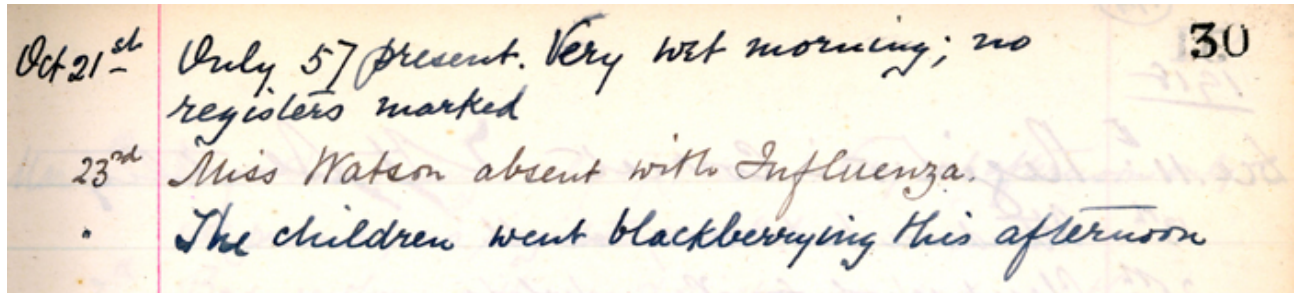 Oct 21st Only 57 present. Very wet morning; no 30
registers marked
23rd Miss Watson absent with Influenza.
" The children went blackberrying this afternoon